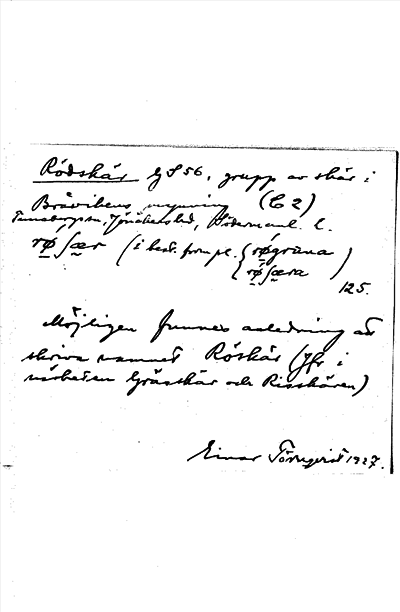 Rödskär GS 56, grupp av skär i
Bråvikens mynning (C 2)
Tunabergs sn, Jönåkers hd, Södermanl. l.
rø̱´ʃær (i best. form pl. { rø̱´grùna )
{ rø̱´ʃæra
125.
Möjligen finnes anledning att
skriva namnet Röskär (Jfr i
närheten Grässkär och Risskären)
Einar Törnqvist 1927.